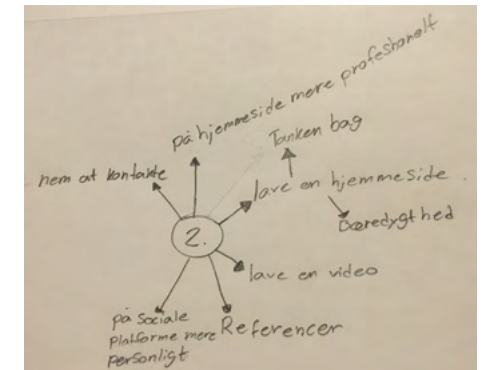 på hjemmeside mere profeshonelt
Tanken bag
nem at kontakte
lave en hjemmeside.
Bæredygthed
2.
lave en video
på sociale
platforme mere
personligt
Referencer